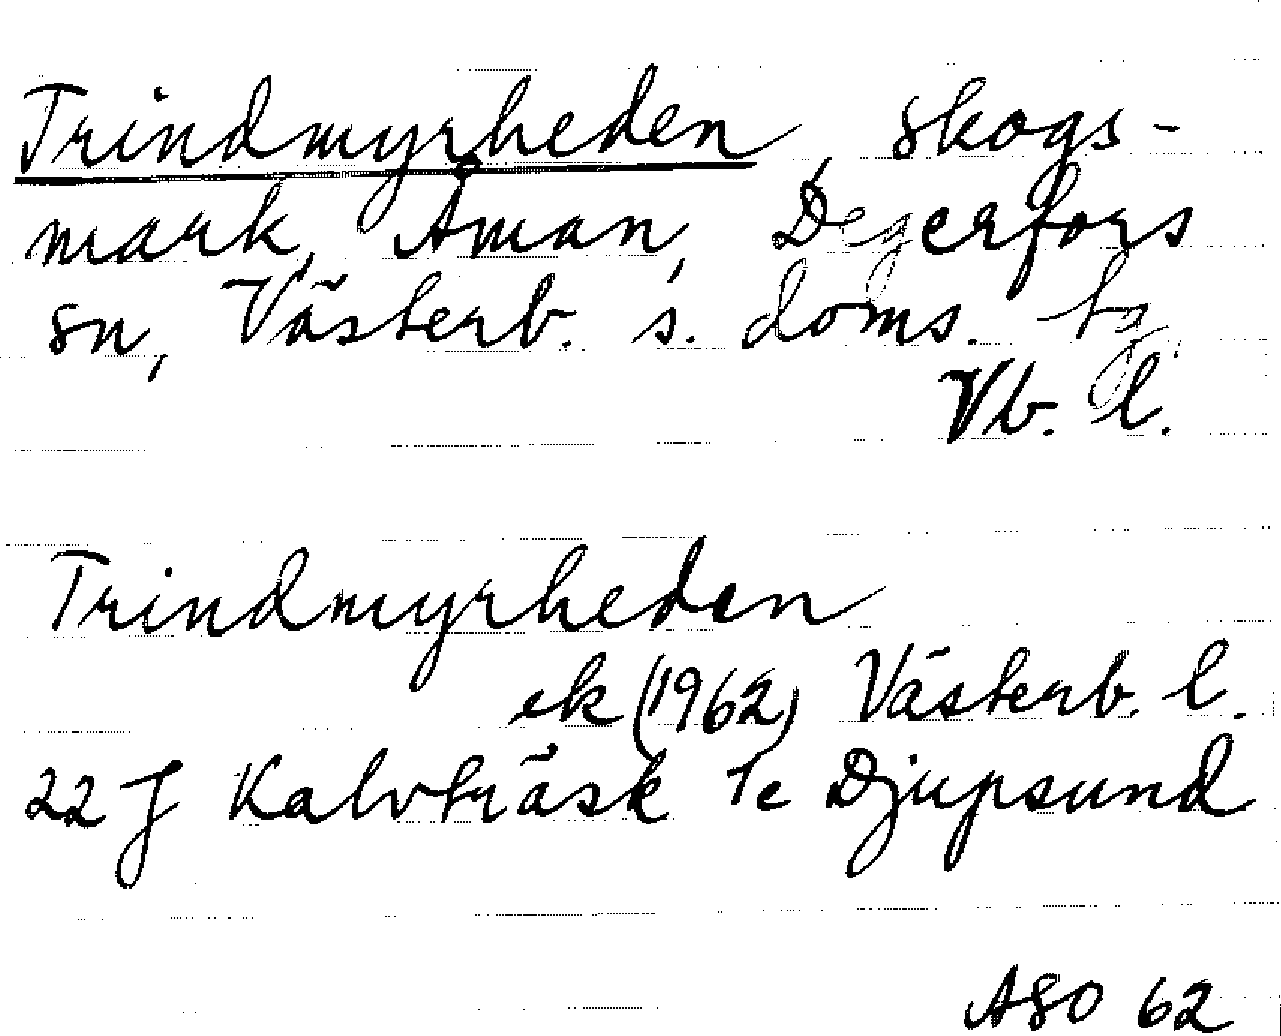 Trindmyrheden, skogs-
mark, Åman, Degerfors
sn, Västerb. s. doms. tg,
Vb. l.
Trindmyrheden
ek (1962) Västerb. l.
22 J Kalvträsk 1e Djupsund
ASO 62